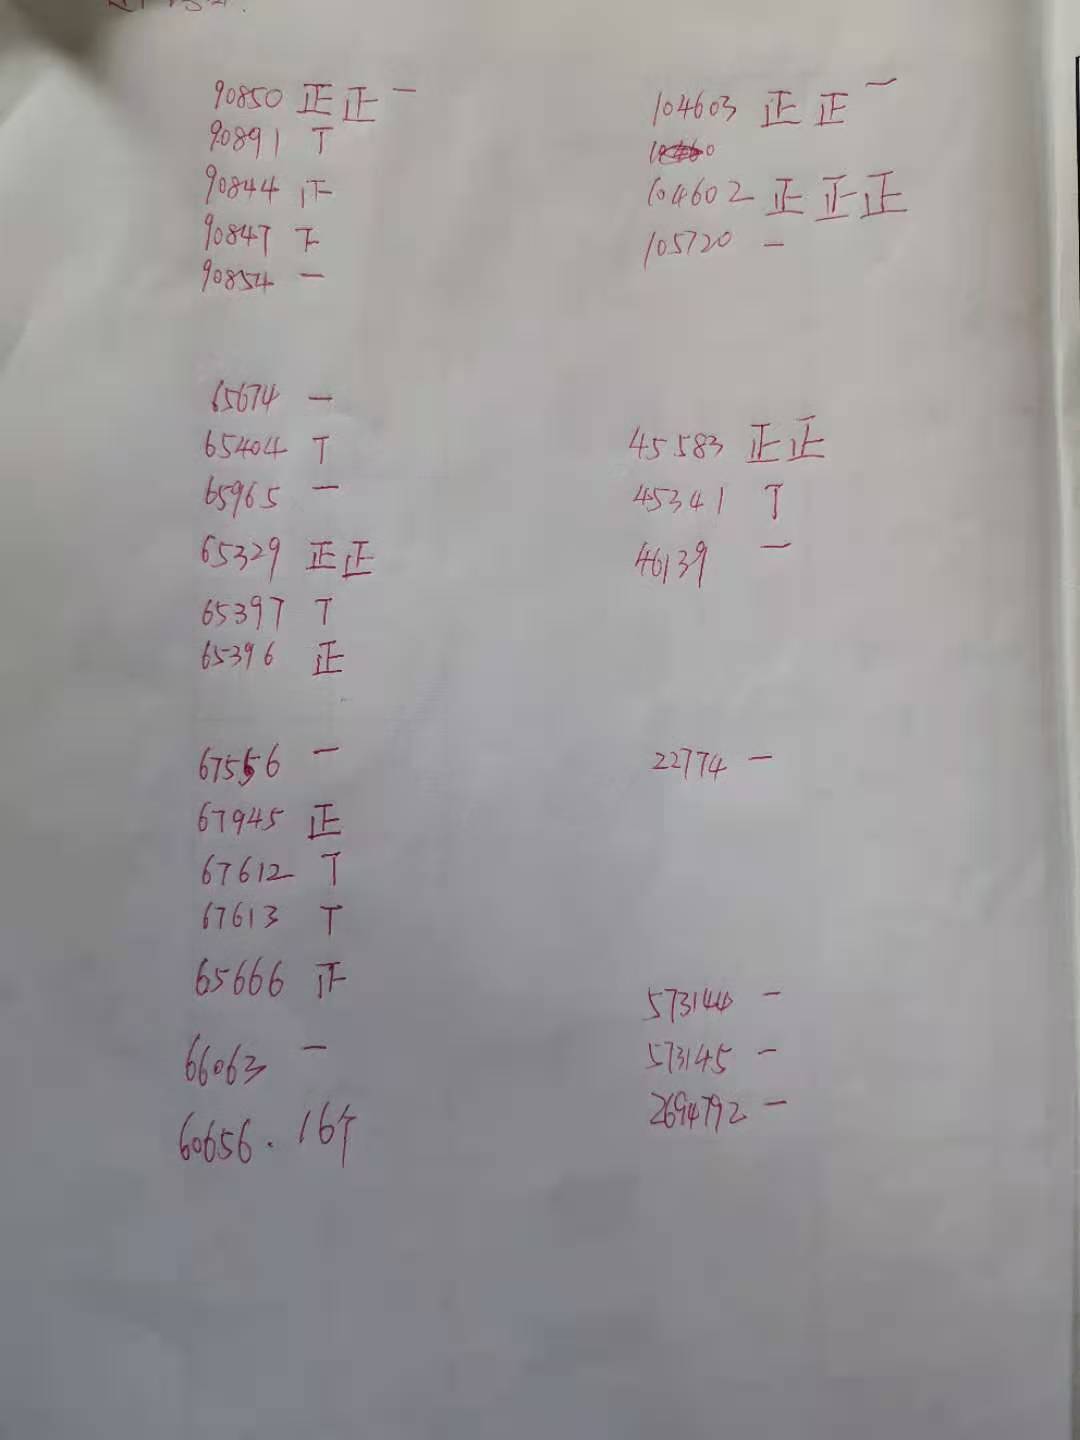 90850 正正一
90891 T
90844 正
90847 下
90854 一
65674 一
65404 T
65965 一
65329 正正
65397 T
65396 正
67556 一
67945 正
67612 T
67613 T
65666 正
66063 一
60656. 16个
104603 正正一
104602 正正正
105720 一
45583 正正
45341 T
46139 一
22774 一
573144 一
573145 一
2694792 一